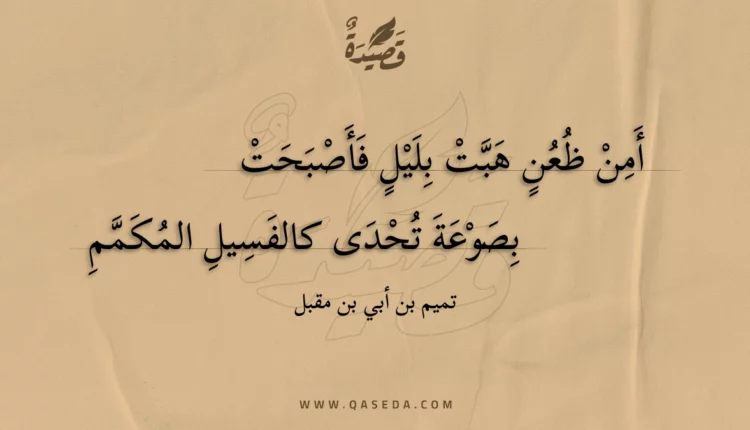 قَصِيدَةٌ
أَمِنْ ظُعُنٍ هَبَّتْ بِلَيْلٍ فَأَصْبَحَتْ
بِصَوْعَةَ تُحْدَى كالفَسِيلِ المُكَمَّمِ
تميم بن أبي بن مقبل
WWW.QASEDA.COM